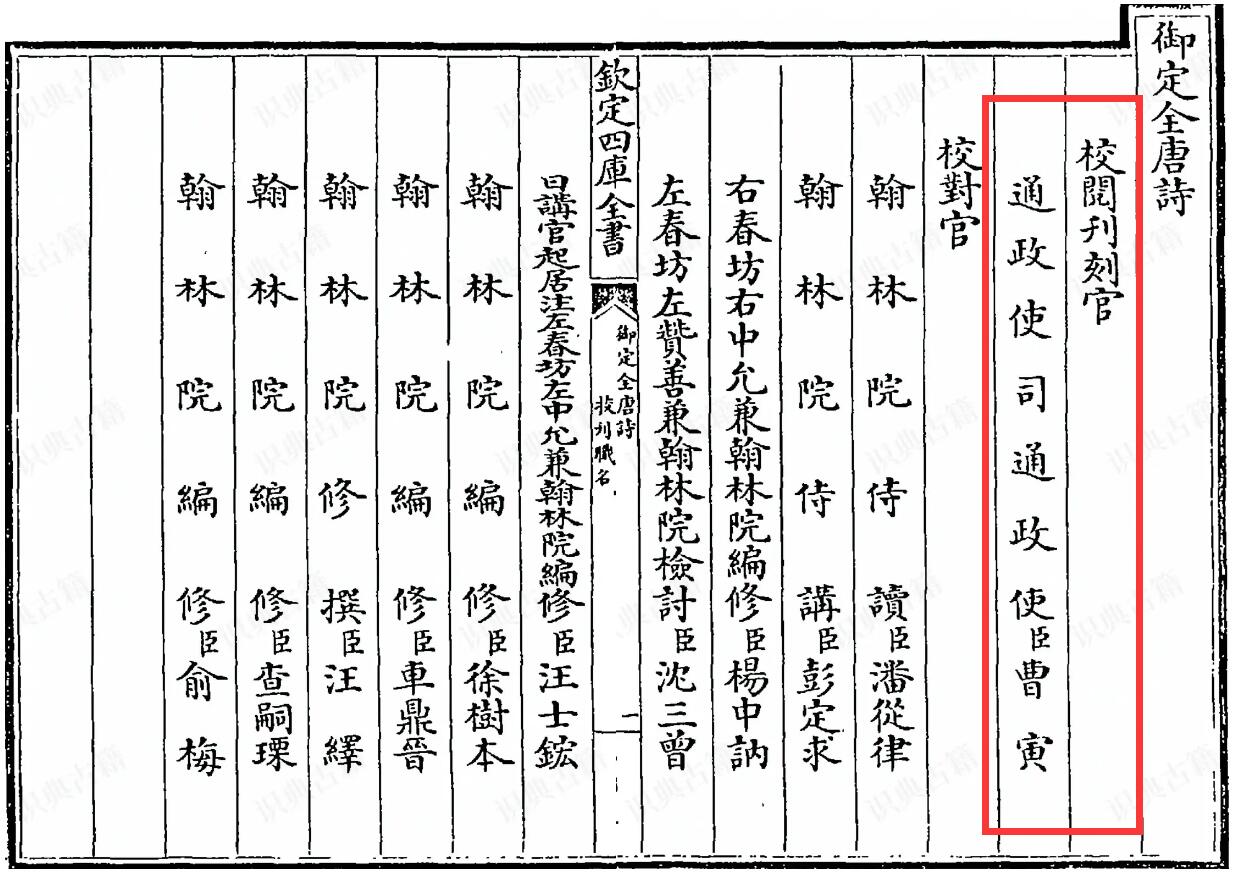 御定全唐詩
校閱刋刻官
通政使司通政使臣曹寅
校對官
翰林院侍讀臣潘從律
翰林院侍講臣彭定求
右春坊右中允兼翰林院編修臣楊中訥
左春坊左贊善兼翰林院檢討臣沈三曾
欽定四庫全書
御定全唐詩
校刋職名
一
日講官起居注左春坊左中允兼翰林院編修臣汪士鋐
翰林院編修臣徐樹本
翰林院編修臣車鼎晉
翰林院修撰臣汪繹
翰林院編修臣查嗣瑮
翰林院編修臣俞梅
识典古籍